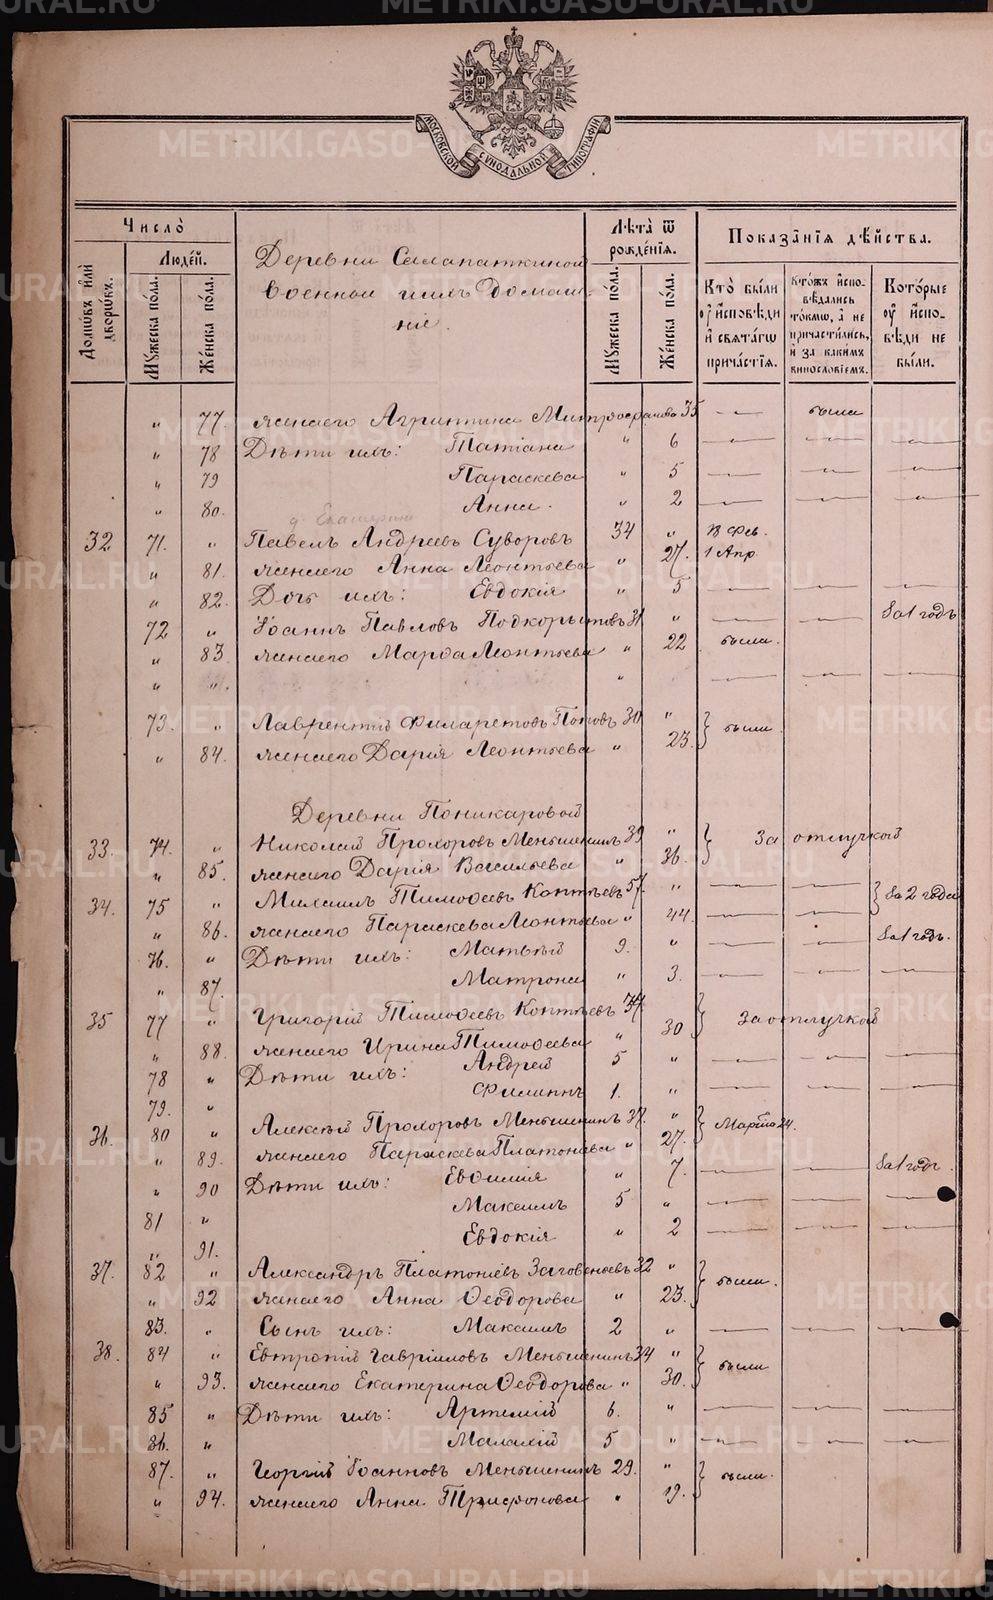 МОСКОВСКОЙ СѴНОДАЛЬНОЙ ТИПОГРАФІИ
Число̀
Домѡвъ и҆лѝ дворѡвъ.
Люде́й.
Мꙋ́жеска по́ла.
Же́нска по́ла.
Деревни Салапаткиной военнои и ихъ домашніе.
Лѣ́та ѿ рожде́нїѧ.
Мꙋ́жеска по́ла.
Же́нска по́ла.
Показа́нїѧ дѣ́йства.
Кто̀ бы́ли оу҆ и҆сповѣ́ди и҆ свѧта́гѡ прича́стїѧ.
Кто́жъ и҆сповѣдались то́кмѡ, а҆ не причасти́лись, и҆ за каки́мъ винослові́емъ.
Кото́рые оу҆ и҆сповѣ́ди не бы́ли.
" 77. жена его Агриппина Митрофанова 35 — была
" 78 Дѣти ихъ: Татіана " 6 — — —
" 79 Параскева " 5 — — —
" 80. Анна. " 2 — — —
д Екатерин
32 71. " Павелъ Андреевъ Суворовъ 34 " 18 Фев.
" 81. жена его Анна Леонтьева " 27. 1 Апр
" 82. Дочь ихъ: Евдокія " 5 — — —
72 " Іоаннъ Павловъ Подкорытовъ 31 " — — За 1 годъ
" 83 жена его Марѳа Леонтьева " 22 была.
" " " — — —
73. " Лаврентій Филаретовъ Поповъ 30 " были
" 84. жена его Дарія Леонтьева " 23.
Деревни Поникаровой
33. 74. " Николай Прохоровъ Меньшенинъ 39 " За отлучкой
" 85. жена его Дарія Васильева " 36.
34. 75 " Михаилъ Тимоѳеевъ Коптѣевъ 57. " — — За 2 года
" 86. жена его Параскева Леонтьева " 44. — —
76. " Дѣти ихъ: Матвѣй 9. " — — За 1 годъ.
" 87. Матрона " 3. — — —
35 77 " Григорій Тимоѳеевъ Коптѣевъ 34. " За отлучкой
" 88. жена его Ирина Тимоѳеева " 30
78 " Дѣти ихъ: Андрей 5 " — — —
79. " Филиппъ 1. " — — —
36. 80 " Алексѣй Прохоровъ Меньшенинъ 37. " Марта 24.
" 89. жена его Параскева Платонова " 27.
" 90 Дѣти ихъ: Евѳимія " 7. — — За 1 годъ.
81 " Максимъ 5 " — — —
" 91. Евдокія " 2 — — —
37. 82 " Александръ Платоновъ Заговеньевъ 32 " были.
" 92 жена его Анна Ѳеодорова " 23.
83. " Сынъ ихъ: Максимъ 2 " — — —
38. 84 " Евтропій Гавріиловъ Меньшенинъ 34 " были
" 93. жена его Екатерина Ѳеодорова " 30.
85 " Дѣти ихъ: Артемій 6. " — — —
86. " Малахій 5 " — — —
87. " Георгій Іоанновъ Меньшенинъ 29. " были.
" 94. жена его Анна Трифонова " 19.